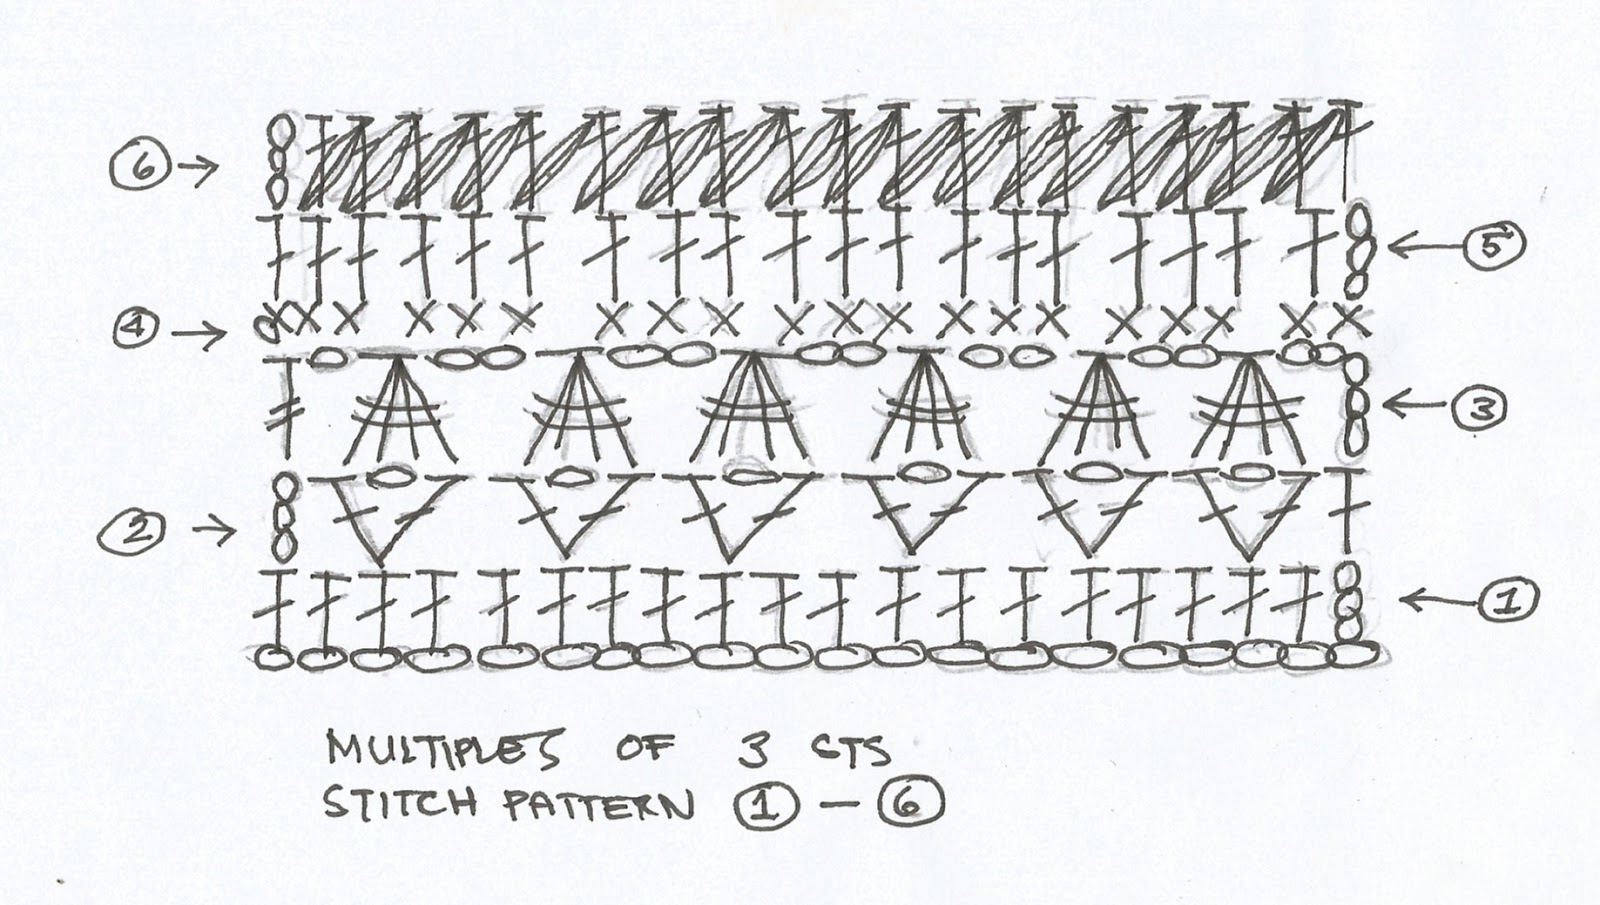 6
5
4
3
2
1
MULTIPLES OF 3 STS
STITCH PATTERN 1 - 6